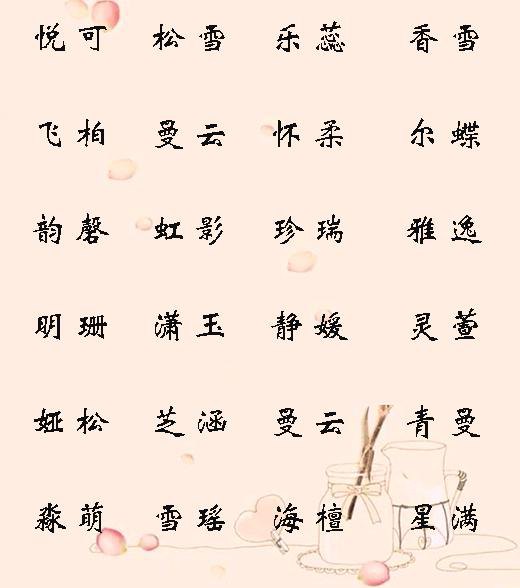 悦可 松雪 乐蕊 香雪
飞柏 曼云 怀柔 尔蝶
韵磬 虹影 珍瑞 雅逸
明珊 潇玉 静媛 灵萱
娅松 芝涵 曼云 青曼
淼萌 雪瑶 海檀 星满